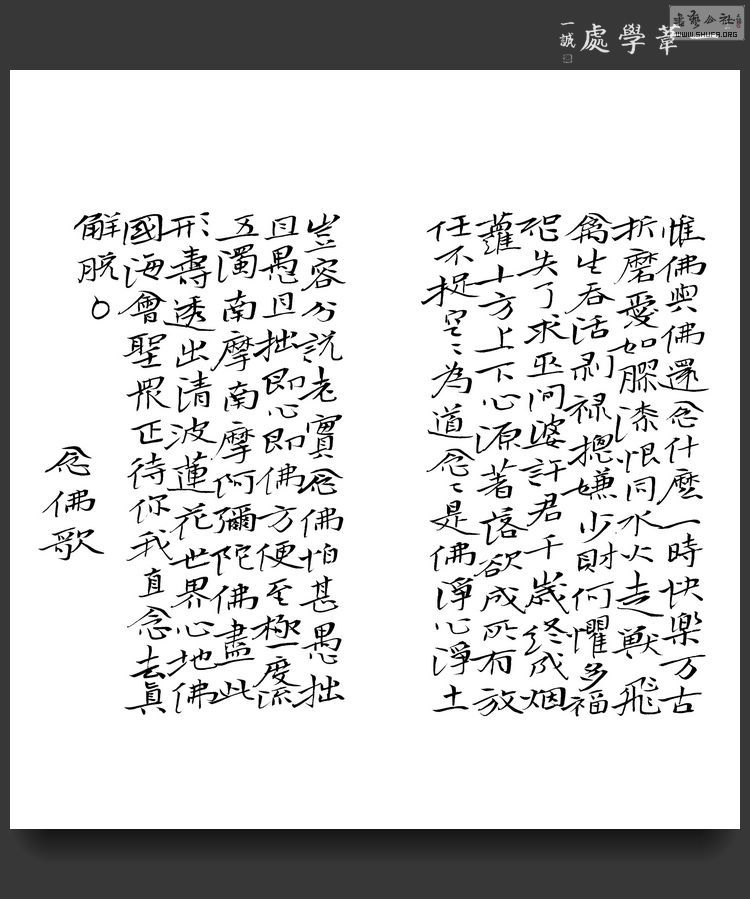 書藝公社
WWW.SHUFA.ORG
一葦學處
一誠
惟佛與佛還念什麼一時快樂万古
折磨愛如膠漆恨同水火走獸飛
禽生吞活剥禄摠嫌少財何懼多福
祀失了求巫问婆許君千歲終成烟
蘿十方上下心源著落欲成所有放
任不捉空〻為道念〻是佛淨心淨土
豈容分說老實念佛怕甚愚拙
且愚且拙即心即佛方便至極一度流
五濁南摩南摩阿彌陀佛盡此
形壽透出清波蓮花世界心地佛
國海會聖眾正待你我直念去真
解脫〇
念佛歌